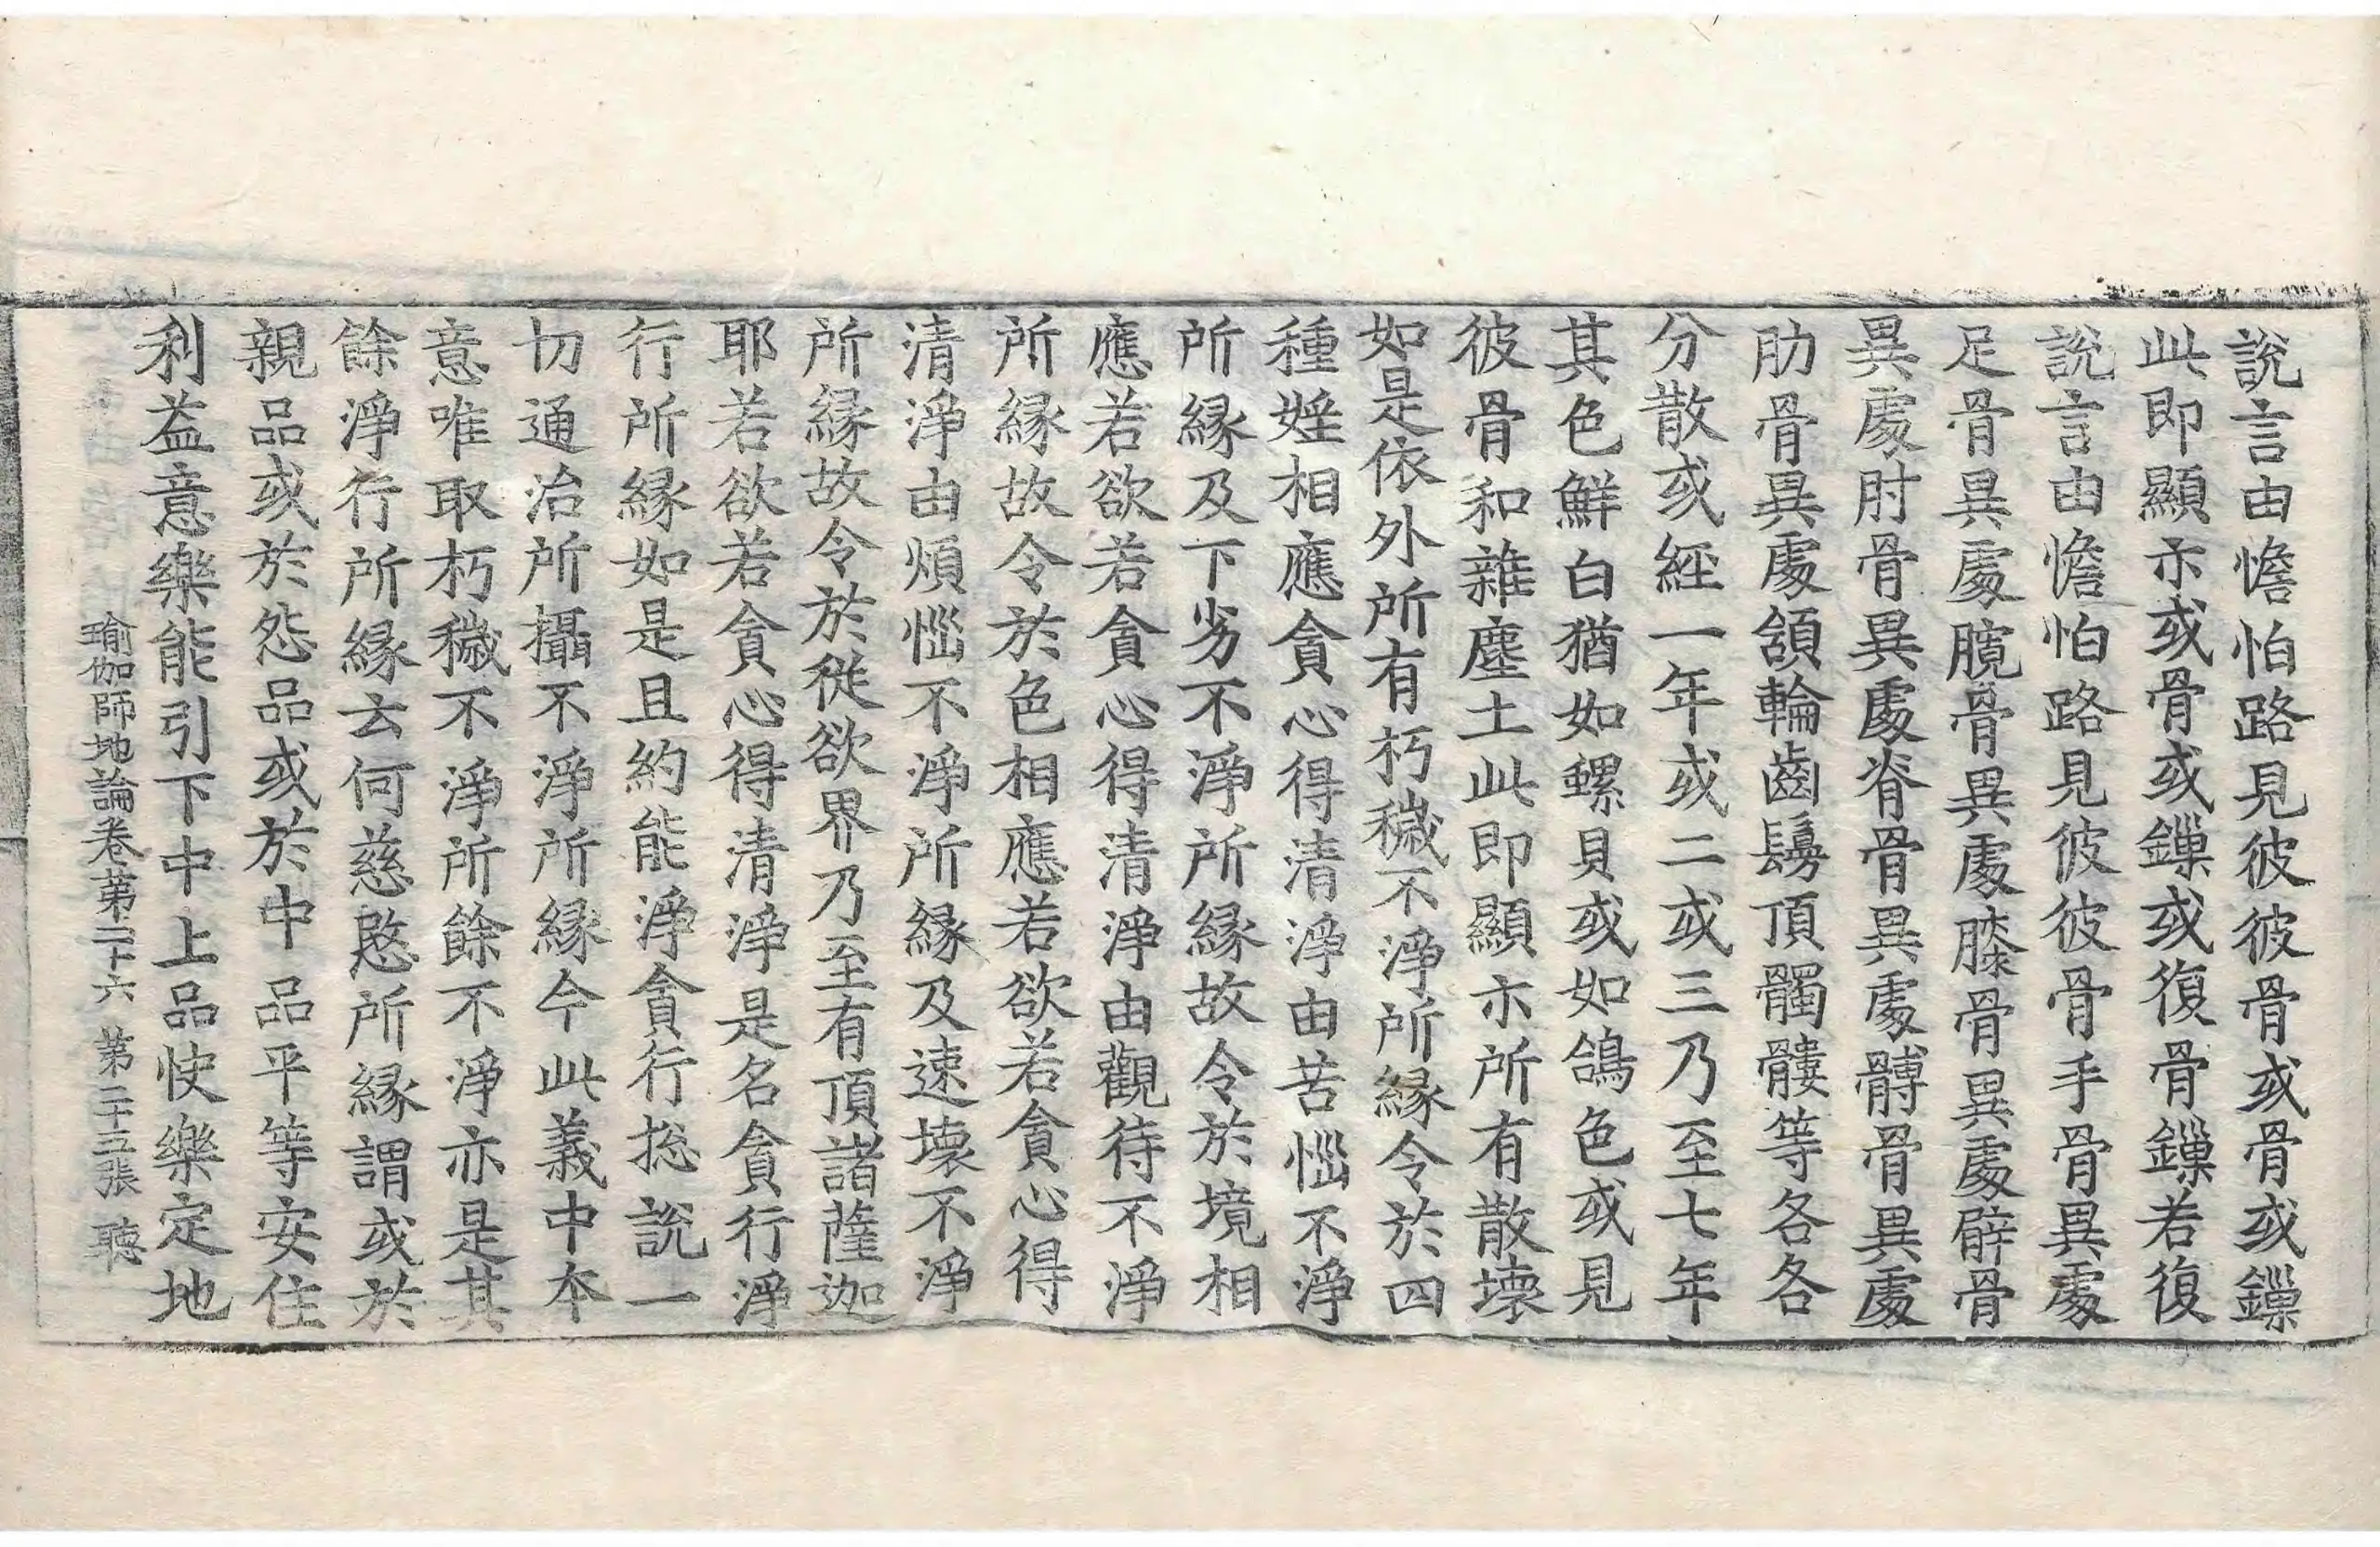 說言由憺怕路見彼彼骨或骨或鏁
此即顯示或骨或鏁或復骨鏁若復
說言由憺怕路見彼彼骨手骨異處
足骨異處臗骨異處膝骨異處髀骨
異處肘骨異處脊骨異處髆骨異處
肋骨異處頷輪齒鬘頂髑髏等各各
分散或經一年或二或三乃至七年
其色鮮白猶如螺貝或如鴿色或見
彼骨和雜塵土此即顯示所有散壞
如是依外所有朽穢不淨所緣令於四
種婬相應貪心得清淨由苦惱不淨
所緣及下劣不淨所緣故令於境相
應若欲若貪心得清淨由觀待不淨
所緣故令於色相應若欲若貪心得
清淨由煩惱不淨所緣及速壞不淨
所緣故令於從欲界乃至有頂諸薩迦
耶若欲若貪心得清淨是名貪行淨
行所緣如是且約能淨貪行捴說一
切通治所攝不淨所緣今此義中本
意唯取朽穢不淨所餘不淨亦是其
餘淨行所緣云何慈愍所緣謂或於
親品或於怨品或於中品平等安住
利益意樂能引下中上品快樂定地
瑜伽師地論卷第二十六 第二十五張 聽